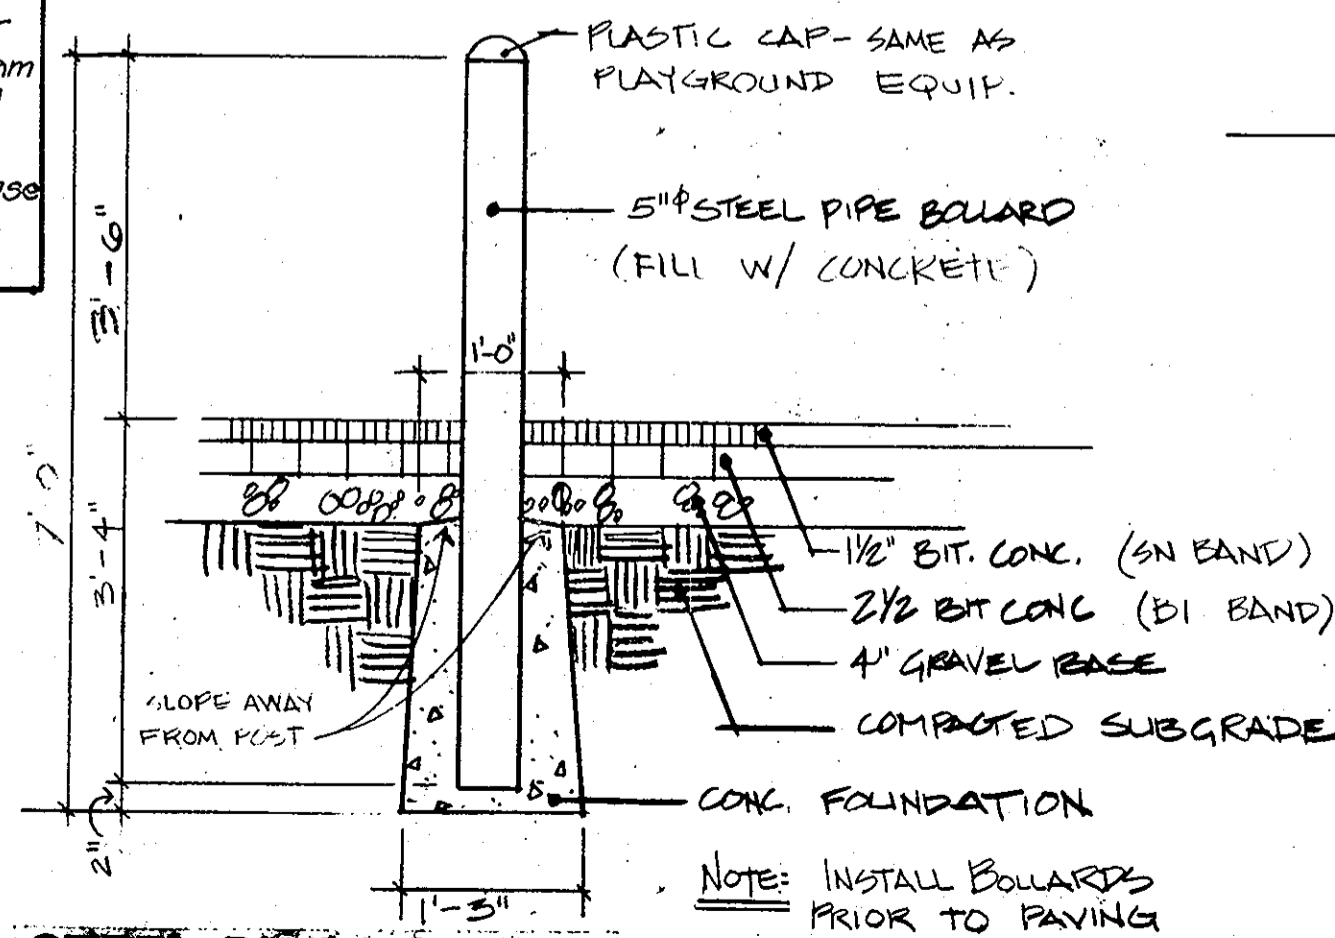 nm
nse
PLASTIC CAP- SAME AS
PLAYGROUND EQUIP.
5"φ STEEL PIPE BOLLARD
(FILL W/ CONCRETE)
3'-6"
1'-0"
7'0"
3'-4"
1½" BIT. CONC. (SN BAND)
2½ BIT CONC (BI BAND)
4" GRAVEL BASE
COMPACTED SUBGRADE
SLOPE AWAY
FROM POST
CONC. FOUNDATION
2"
1'-3"
NOTE: INSTALL BOLLARDS
PRIOR TO PAVING